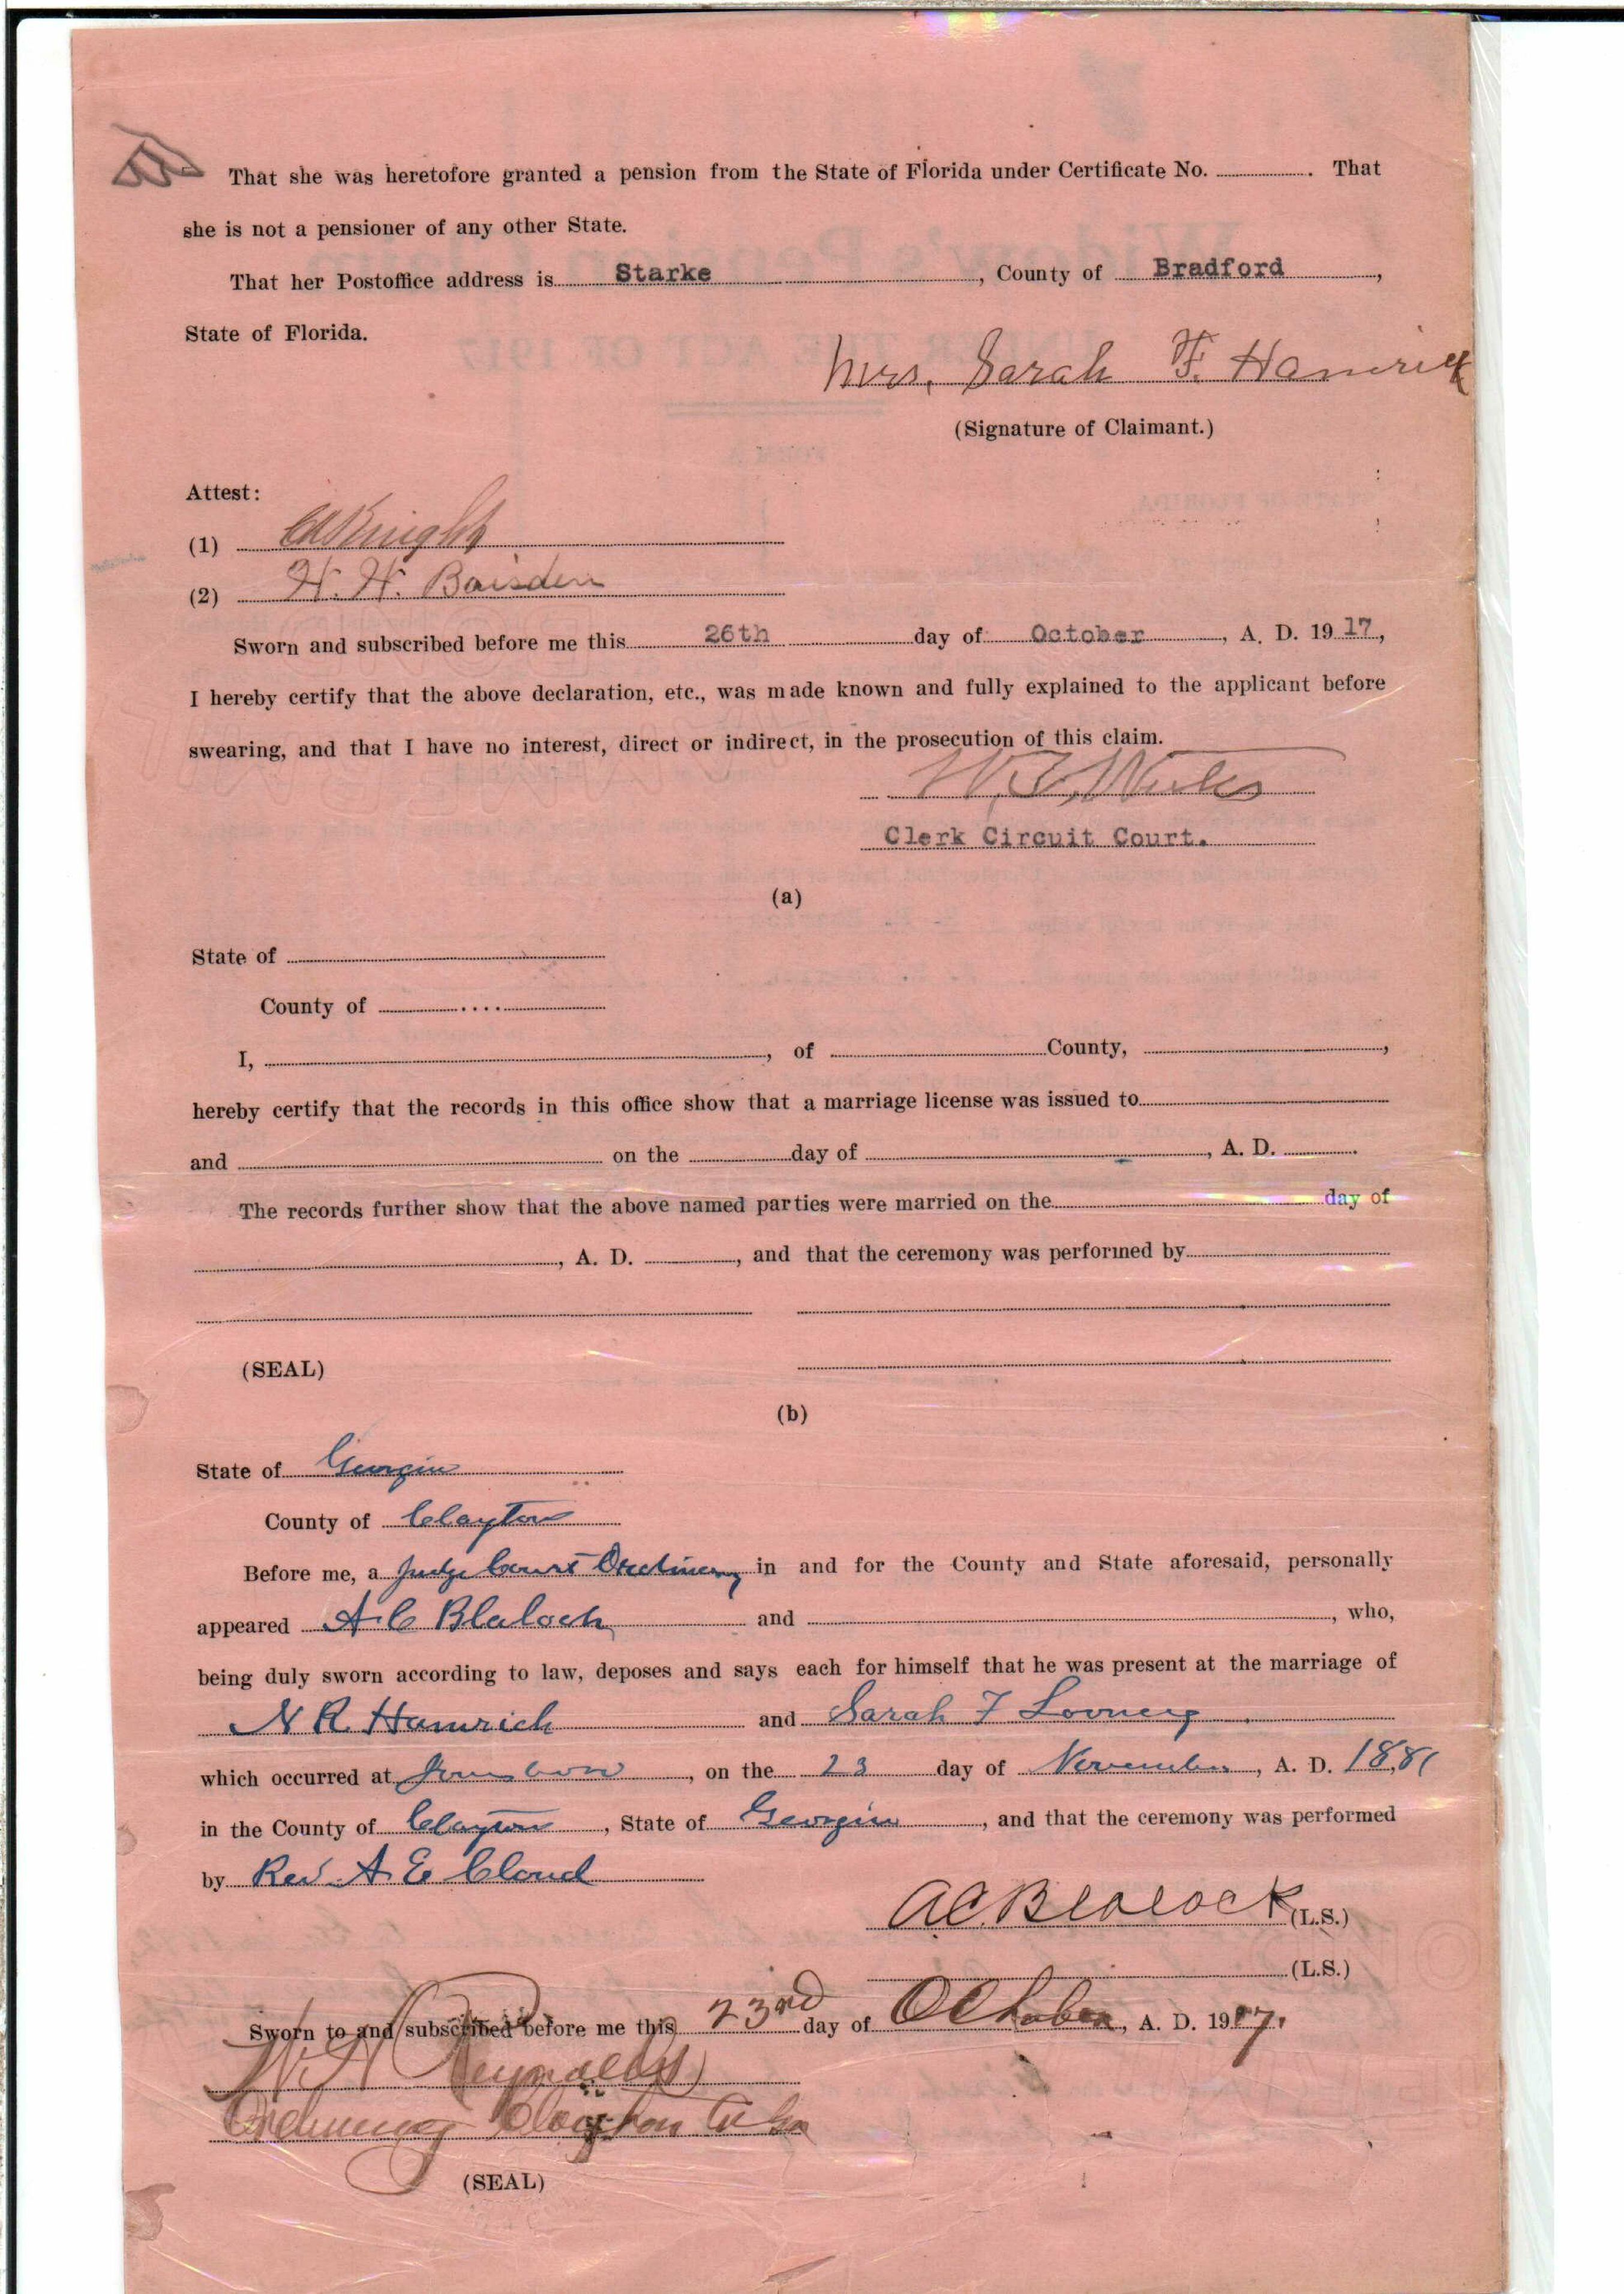 That she was heretofore granted a pension from the State of Florida under Certificate No. .................. That
she is not a pensioner of any other State.
That her Postoffice address is Starke, County of Bradford,
State of Florida.
Mrs. Sarah F. Hamrick
(Signature of Claimant.)
Attest:
(1) Knight
(2) H. H. Baisden
Sworn and subscribed before me this 26th day of October, A. D. 1917,
I hereby certify that the above declaration, etc., was made known and fully explained to the applicant before
swearing, and that I have no interest, direct or indirect, in the prosecution of this claim.
Clerk Circuit Court.
(a)
State of
County of
I, , of County, ,
hereby certify that the records in this office show that a marriage license was issued to
and on the day of , A. D.
The records further show that the above named parties were married on the day of
, A. D. , and that the ceremony was performed by
(SEAL)
(b)
State of Georgia
County of Clayton
Before me, a Judge Court Ordinary in and for the County and State aforesaid, personally
appeared A C Blalock and , who,
being duly sworn according to law, deposes and says each for himself that he was present at the marriage of
N R. Hamrick and Sarah F Looney
which occurred at Jonesboro, on the 23 day of November, A. D. 1881
in the County of Clayton, State of Georgia, and that the ceremony was performed
by Rev. A E Cloud
A.C. Blalock (L.S.)
(L.S.)
Sworn to and subscribed before me this 23rd day of October, A. D. 1917.
Reynolds
Ordinary Clayton Co Ga
(SEAL)